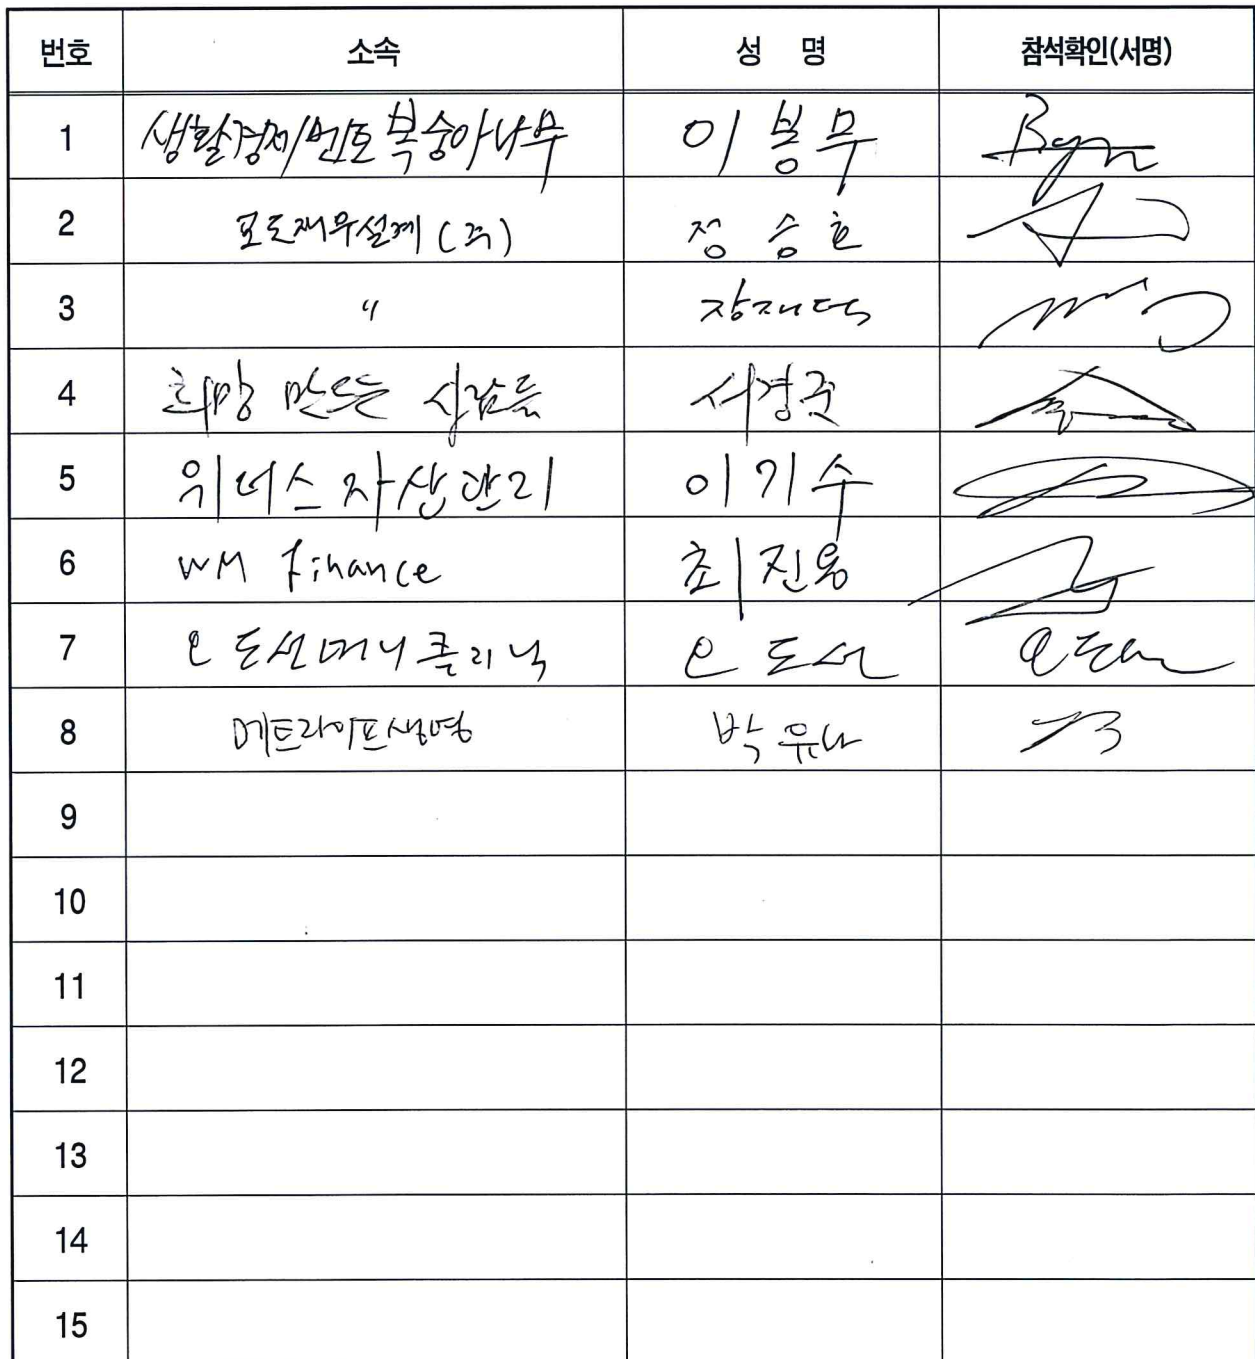 번호 소속 성 명 참석확인(서명)
1 생활경제/멘토 복숭아나무 이봉무
2 포도재무설계(주) 정승호
3 〃 장재덕
4 희망 만드는 사람들 서경준
5 위너스자산관리 이기수
6 WM Finance 최진용
7 오도선머니클리닉 오도선 오도선
8 메트라이프생명 박유나
9
10
11
12
13
14
15